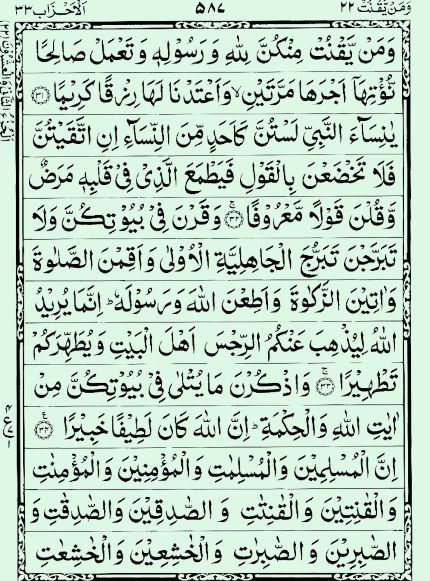 وَمَنْ يَّقْنُتْ ٢٢ ٥٨٧ اَلْاَحْزَاب ٣٣
وَمَنْ يَّقْنُتْ مِنْكُنَّ لِلّٰهِ وَ رَسُوْلِهٖ وَ تَعْمَلْ صَالِحًا
نُّؤْتِهَآ اَجْرَهَا مَرَّتَيْنِ ۙ وَاَعْتَدْنَا لَهَا رِزْقًا كَرِيْمًا ﴿٣١﴾
يٰنِسَآءَ النَّبِيِّ لَسْتُنَّ كَاَحَدٍ مِّنَ النِّسَآءِ اِنِ اتَّقَيْتُنَّ
فَلَا تَخْضَعْنَ بِالْقَوْلِ فَيَطْمَعَ الَّذِيْ فِيْ قَلْبِهٖ مَرَضٌ
وَّقُلْنَ قَوْلًا مَّعْرُوْفًا ﴿٣٢﴾ۚ وَقَرْنَ فِيْ بُيُوْتِكُنَّ وَلَا
تَبَرَّجْنَ تَبَرُّجَ الْجَاهِلِيَّةِ الْاُوْلٰى وَاَقِمْنَ الصَّلٰوةَ
وَاٰتِيْنَ الزَّكٰوةَ وَاَطِعْنَ اللّٰهَ وَرَسُوْلَهٗ ؕ اِنَّمَا يُرِيْدُ
اللّٰهُ لِيُذْهِبَ عَنْكُمُ الرِّجْسَ اَهْلَ الْبَيْتِ وَيُطَهِّرَكُمْ
تَطْهِيْرًا ﴿٣٣﴾ۚ وَاذْكُرْنَ مَا يُتْلٰى فِيْ بُيُوْتِكُنَّ مِنْ
اٰيٰتِ اللّٰهِ وَالْحِكْمَةِ ؕ اِنَّ اللّٰهَ كَانَ لَطِيْفًا خَبِيْرًا ﴿٣٤﴾ۧ
اِنَّ الْمُسْلِمِيْنَ وَالْمُسْلِمٰتِ وَالْمُؤْمِنِيْنَ وَالْمُؤْمِنٰتِ
وَالْقٰنِتِيْنَ وَالْقٰنِتٰتِ وَ الصّٰدِقِيْنَ وَالصّٰدِقٰتِ وَ
الصّٰبِرِيْنَ وَ الصّٰبِرٰتِ وَالْخٰشِعِيْنَ وَالْخٰشِعٰتِ